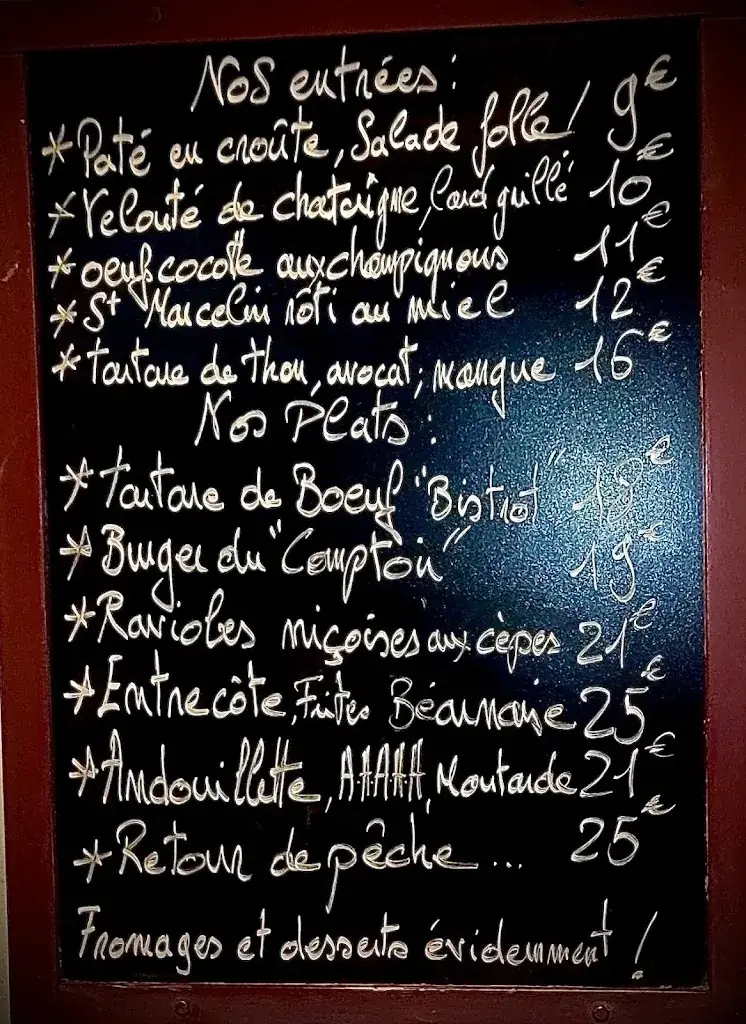 Nos entrées :
* Paté en croûte, Salade folle ! 9€
* Velouté de chataigne, lard grillé 10€
* oeuf cocotte aux champignons 11€
* St Marcelin rôti au miel 12€
* tartare de thon, avocat, mangue 16€
Nos Plats :
* tartare de Boeuf "Bistrot" 18€
* Burger du "Comptoir" 19€
* Ravioles niçoises aux cèpes 21€
* Entrecôte, Frites Béarnaise 25€
* Andouillette, AAAAA, Moutarde 21€
* Retour de pêche ... 25€
Fromages et desserts évidemment !